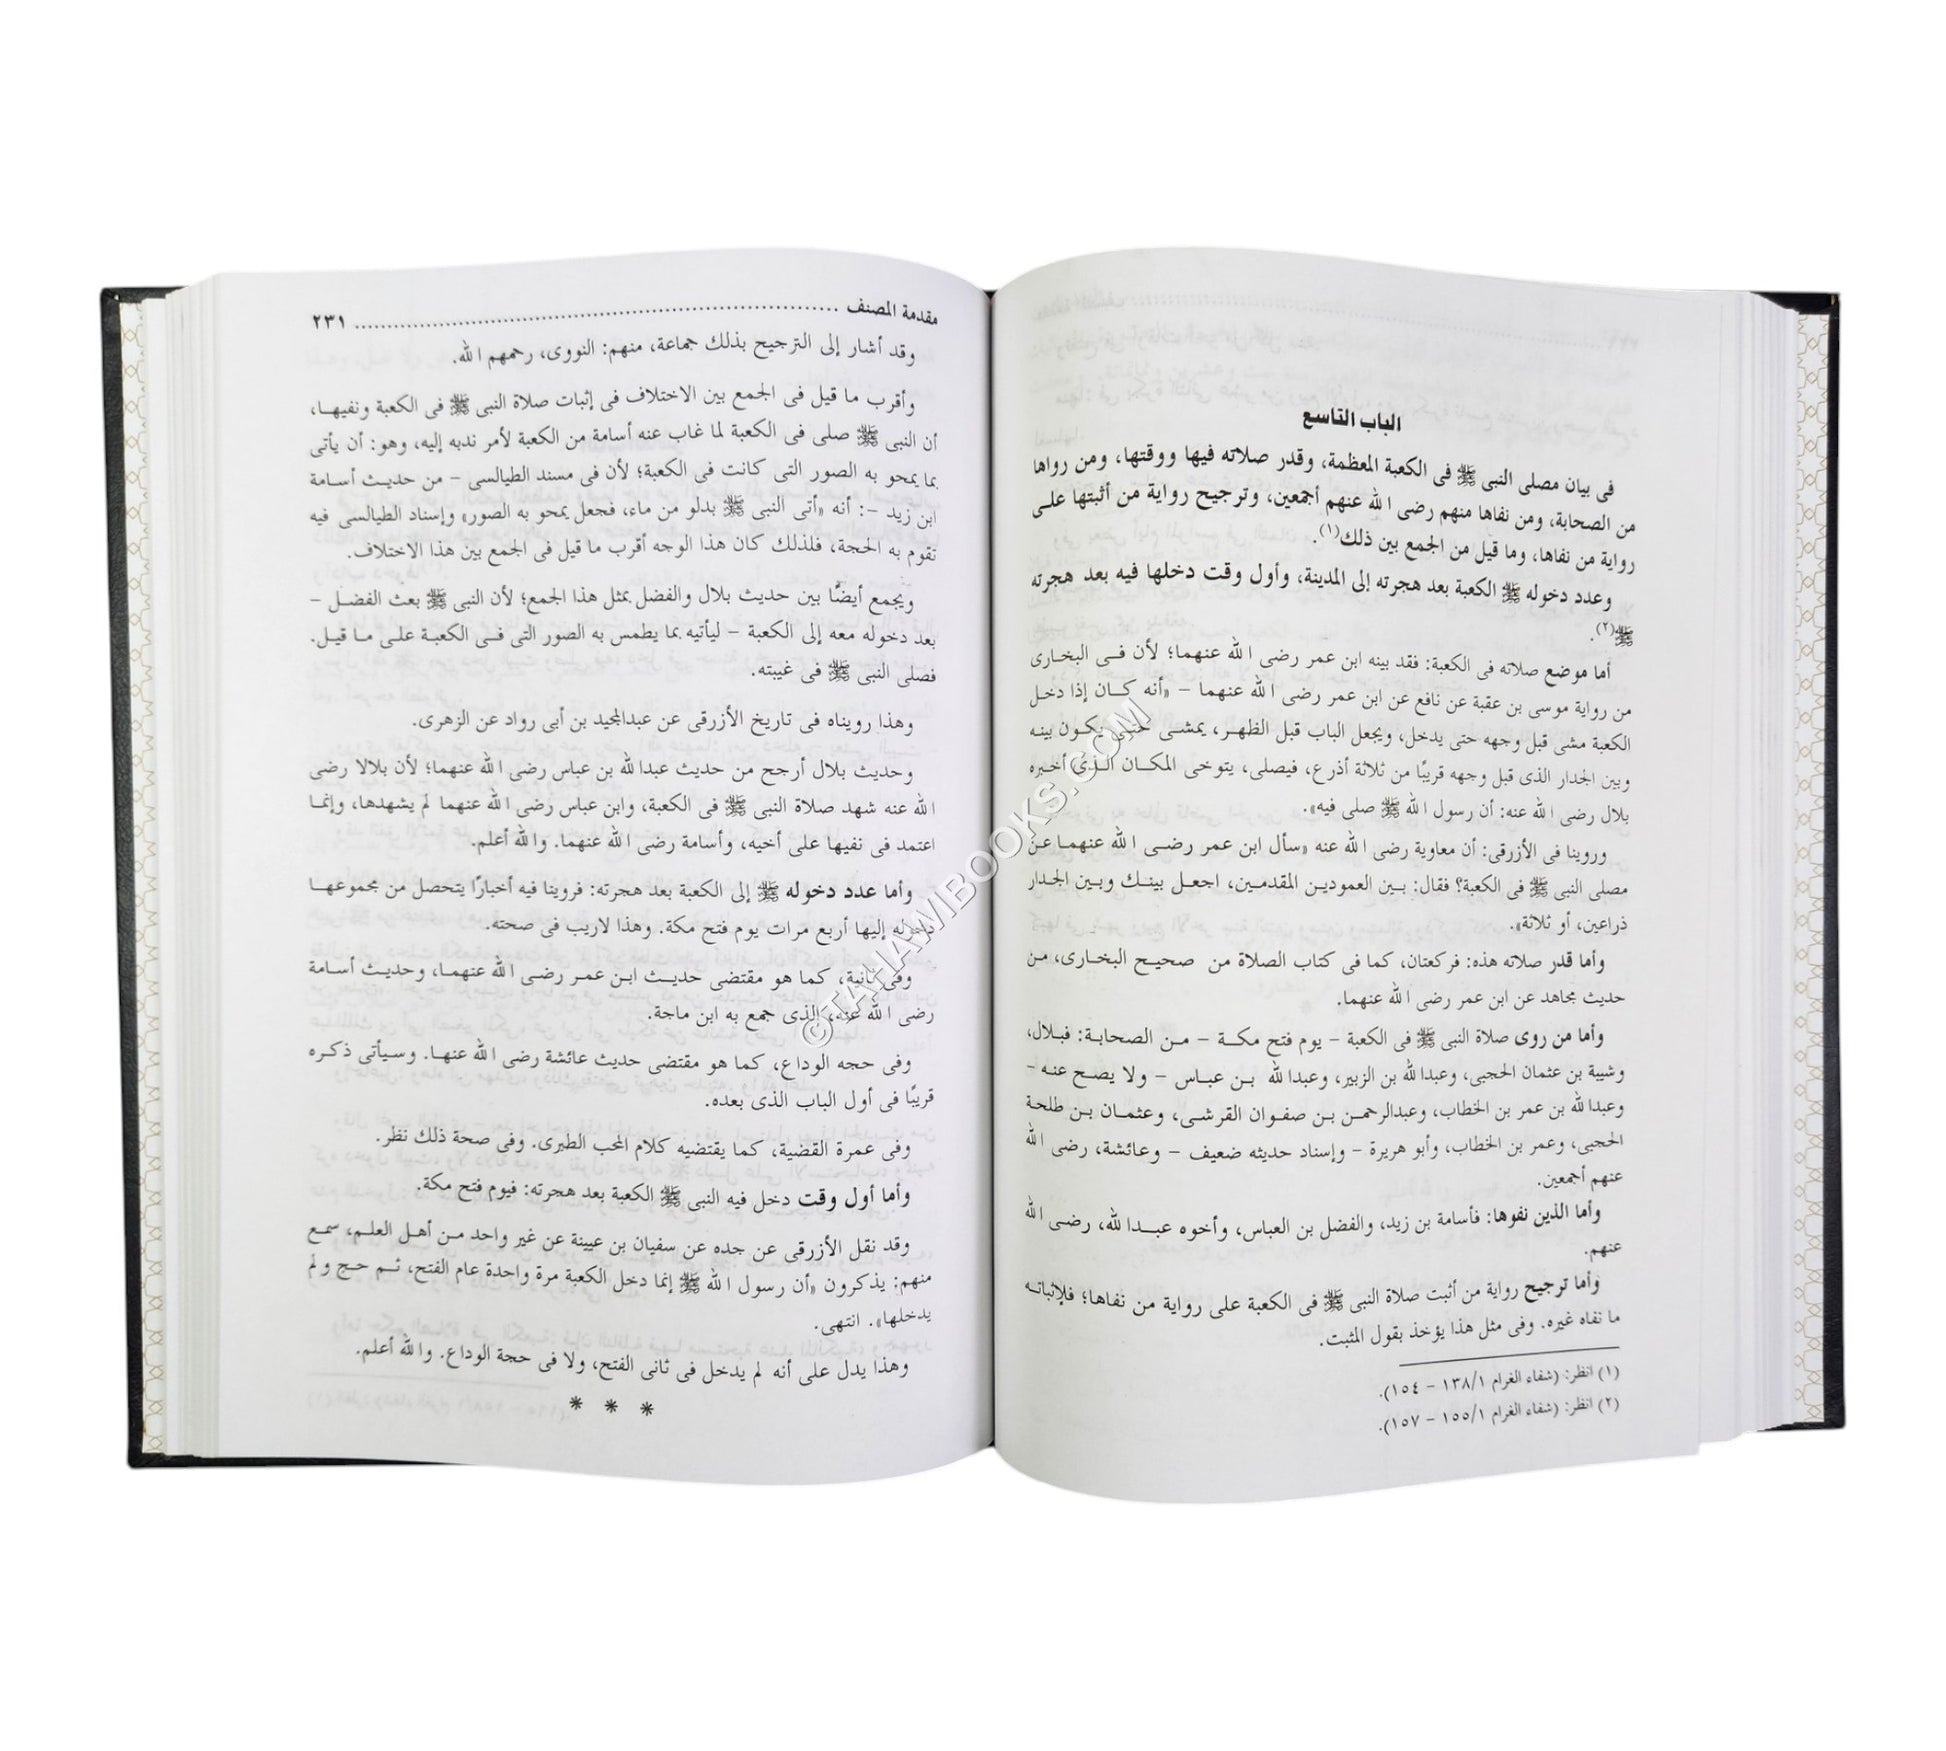 الباب التاسع
فى بيان مصلى النبى ﷺ فى الكعبة المعظمة، وقدر صلاته فيها ووقتها، ومن رواها
من الصحابة، ومن نفاها منهم رضى الله عنهم أجمعين، وترجيح رواية من أثبتها على
رواية من نفاها، وما قيل من الجمع بين ذلك(١).
وعدد دخوله ﷺ الكعبة بعد هجرته إلى المدينة، وأول وقت دخلها فيه بعد هجرته
ﷺ(٢).
أما موضع صلاته فى الكعبة: فقد بينه ابن عمر رضى الله عنهما؛ لأن فى البخارى
من رواية موسى بن عقبة عن نافع عن ابن عمر رضى الله عنهما – «أنه كان إذا دخل
الكعبة مشى قبل وجهه حتى يدخل، ويجعل الباب قبل الظهر، يمشى حتى يكون بينه
وبين الجدار الذى قبل وجهه قريبًا من ثلاثة أذرع، فيصلى، يتوخى المكان الذى أخبره
بلال رضى الله عنه: أن رسول الله ﷺ صلى فيه».
وروينا فى الأزرقى: أن معاوية رضى الله عنه «سأل ابن عمر رضى الله عنهما عن
مصلى النبى ﷺ فى الكعبة؟ فقال: بين العمودين المقدمين، اجعل بينك وبين الجدار
ذراعين، أو ثلاثة».
وأما قدر صلاته هذه: فركعتان، كما فى كتاب الصلاة من صحيح البخارى، من
حديث مجاهد عن ابن عمر رضى الله عنهما.
وأما من روى صلاة النبى ﷺ فى الكعبة – يوم فتح مكة – من الصحابة: فبلال،
وشيبة بن عثمان الحجبى، وعبدالله بن الزبير، وعبدالله بن عباس – ولا يصح عنه –
وعبدالله بن عمر بن الخطاب، وعبدالرحمن بن صفوان القرشى، وعثمان بن طلحة
الحجبى، وعمر بن الخطاب، وأبو هريرة – وإسناد حديثه ضعيف – وعائشة، رضى الله
عنهم أجمعين.
وأما الذين نفوها: فأسامة بن زيد، والفضل بن العباس، وأخوه عبدالله، رضى الله
عنهم.
وأما ترجيح رواية من أثبت صلاة النبى ﷺ فى الكعبة على رواية من نفاها؛ فلإثباته
ما نفاه غيره. وفى مثل هذا يؤخذ بقول المثبت.
(١) انظر: (شفاء الغرام ١٣٨/١ – ١٥٤).
(٢) انظر: (شفاء الغرام ١٥٥/١ – ١٥٧).
مقدمة المصنف ........................................ ٢٣١
وقد أشار إلى الترجيح بذلك جماعة، منهم: النووى، رحمهم الله.
وأقرب ما قيل فى الجمع بين الاختلاف فى إثبات صلاة النبى ﷺ فى الكعبة ونفيها،
أن النبى ﷺ صلى فى الكعبة لما غاب عنه أسامة من الكعبة لأمر ندبه إليه، وهو: أن يأتى
بما يمحو به الصور التى كانت فى الكعبة؛ لأن فى مسند الطيالسى – من حديث أسامة
ابن زيد –: أنه «أتى النبى ﷺ بدلو من ماء، فجعل يمحو به الصور» وإسناد الطيالسى فيه
تقوم به الحجة، فلذلك كان هذا الوجه أقرب ما قيل فى الجمع بين هذا الاختلاف.
ويجمع أيضًا بين حديث بلال والفضل بمثل هذا الجمع؛ لأن النبى ﷺ بعث الفضل –
بعد دخوله معه إلى الكعبة – ليأتيه بما يطمس به الصور التى فى الكعبة على ما قيل.
فصلى النبى ﷺ فى غيبته.
وهذا رويناه فى تاريخ الأزرقى عن عبدالمجيد بن أبى رواد عن الزهرى.
وحديث بلال أرجح من حديث عبدالله بن عباس رضى الله عنهما؛ لأن بلالا رضى
الله عنه شهد صلاة النبى ﷺ فى الكعبة، وابن عباس رضى الله عنهما لم يشهدها، وإنما
اعتمد فى نفيها على أخيه، وأسامة رضى الله عنهما. والله أعلم.
وأما عدد دخوله ﷺ إلى الكعبة بعد هجرته: فروينا فيه أخبارًا يتحصل من مجموعها
دخوله إليها أربع مرات يوم فتح مكة. وهذا لاريب فى صحته.
وفى ثانية، كما هو مقتضى حديث ابن عمر رضى الله عنهما، وحديث أسامة
رضى الله عنه، الذى جمع به ابن ماجة.
وفى حجه الوداع، كما هو مقتضى حديث عائشة رضى الله عنها. وسيأتى ذكره
قريبًا فى أول الباب الذى بعده.
وفى عمرة القضية، كما يقتضيه كلام المحب الطبرى. وفى صحة ذلك نظر.
وأما أول وقت دخل فيه النبى ﷺ الكعبة بعد هجرته: فيوم فتح مكة.
وقد نقل الأزرقى عن جده عن سفيان بن عيينة عن غير واحد من أهل العلم، سمع
منهم: يذكرون «أن رسول الله ﷺ إنما دخل الكعبة مرة واحدة عام الفتح، ثم حج ولم
يدخلها». انتهى.
وهذا يدل على أنه لم يدخل فى ثانى الفتح، ولا فى حجة الوداع. والله أعلم.
* * *
©TAHAWIBOOKS.COM